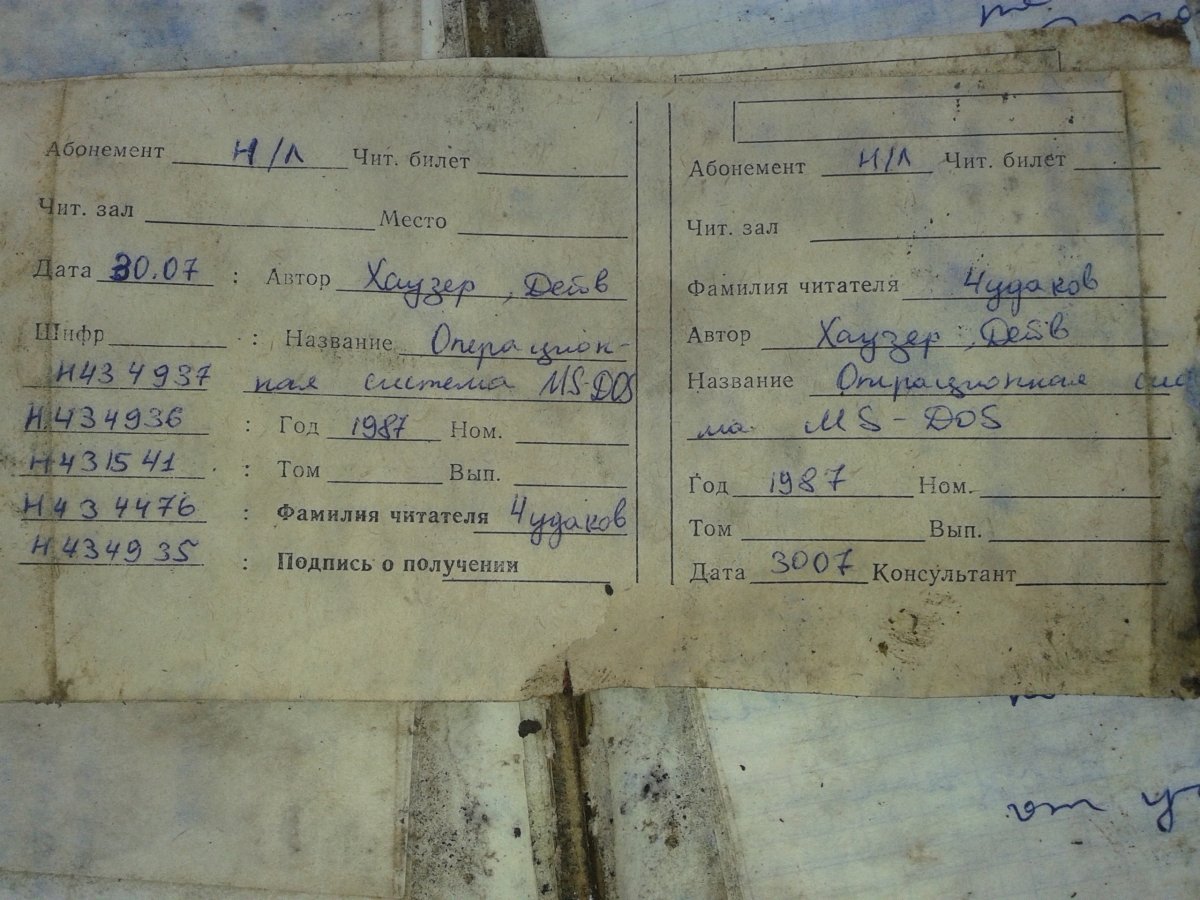 Абонемент Н/Л Чит. билет
Чит. зал Место
Дата 30.07 : Автор Хаузер, Детв
Шифр : Название Операцион-
Н434937 ная система MS-DOS
Н434936 : Год 1987 Ном.
Н431541 : Том Вып.
Н434476 : Фамилия читателя Чудаков
Н434935 : Подпись о получении
Абонемент Н/Л Чит. билет
Чит. зал
Фамилия читателя Чудаков
Автор Хаузер, Детв
Название Операционная сис
ма MS-DOS
Год 1987 Ном.
Том Вып.
Дата 3007 Консультант
от